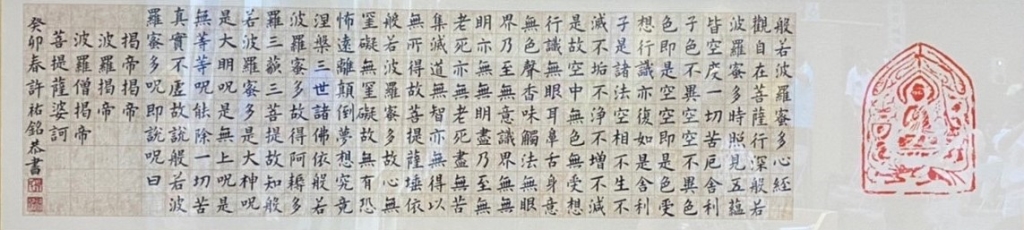 般若波羅蜜多心經
觀自在菩薩行深般若
波羅蜜多時照見五蘊
皆空度一切苦厄舍利
子色不異空空不異色
色即是空空即是色受
想行識亦復如是舍利
子是諸法空相不生不
滅不垢不淨不增不減
是故空中無色無受想
行識無眼耳鼻舌身意
無色聲香味觸法無眼
界乃至無意識界無無
明亦無無明盡乃至無
老死亦無老死盡無苦
集滅道無智亦無得以
無所得故菩提薩埵依
般若波羅蜜多故心無
罣礙無罣礙故無有恐
怖遠離顛倒夢想究竟
涅槃三世諸佛依般若
波羅蜜多故得阿耨多
羅三藐三菩提故知般
若波羅蜜多是大神呪
是大明呪是無上呪是
無等等呪能除一切苦
真實不虛故說般若波
羅蜜多呪即說呪曰
揭帝揭帝
波羅揭帝
波羅僧揭帝
菩提薩婆訶
癸卯春許祐銘恭書